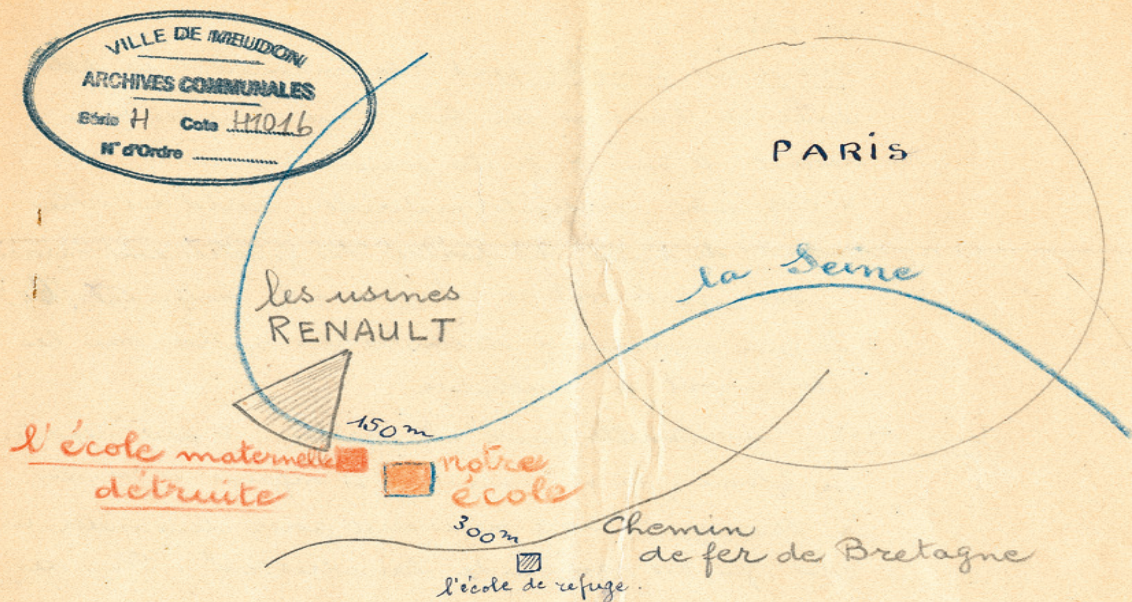 VILLE DE MEUDON
ARCHIVES COMMUNALES
Série H Cote H1016
N° d'Ordre
PARIS
la Seine
les usines
RENAULT
150m
l'école maternelle
détruite
notre
école
300m
Chemin
de fer de Bretagne
l'école de refuge.